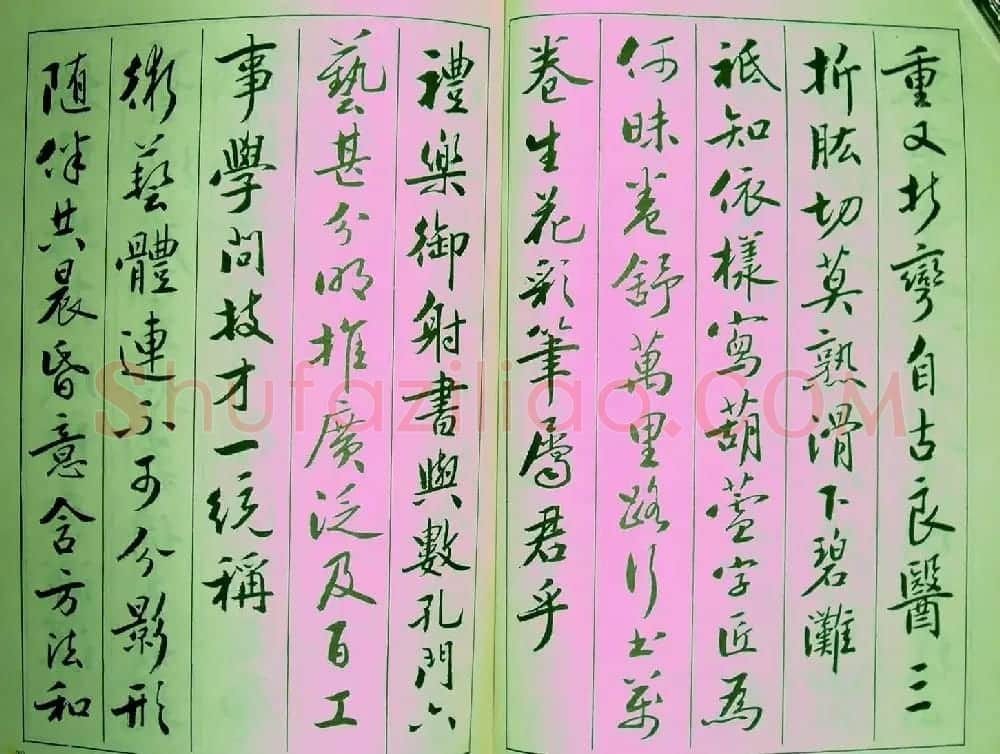 重又彎自古良醫三
折肱切莫熟滑下碧灘
祇知依樣寫葫蘆字匠為
何昧卷舒萬里路行出萬
卷生花彩筆屬君乎
禮樂御射書與數孔門六
藝甚分明推廣泛及百工
事學問技才一統稱
術藝體連不可分影形
随伴共晨昏意含方法和
Shufaziliao.COM